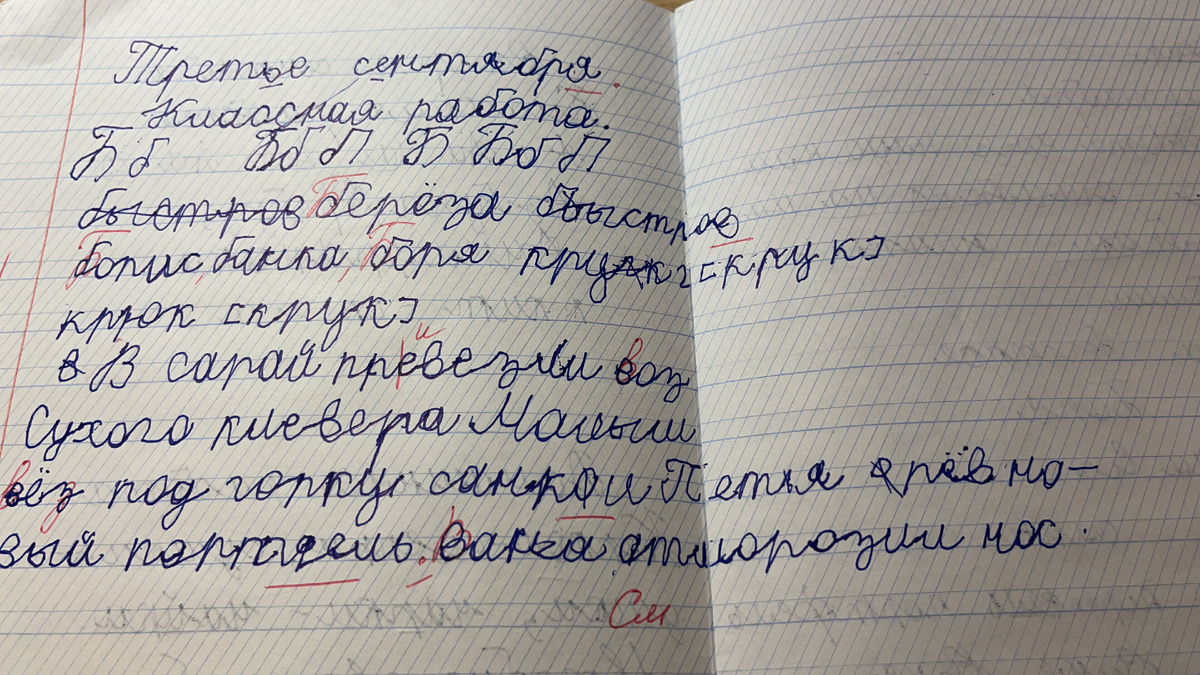 Третье сентября.
Классная работа.
Б б Б б П Б Б б П
быстров берёза быстров
борис, банка, боря кружк [крук]
крюк [крук]
в В сарай превезли воз и
Сухого клевера Малыш
вёз под горку санкои Петья рёв но-
вый портфель. Ванька отморозил нос.
См